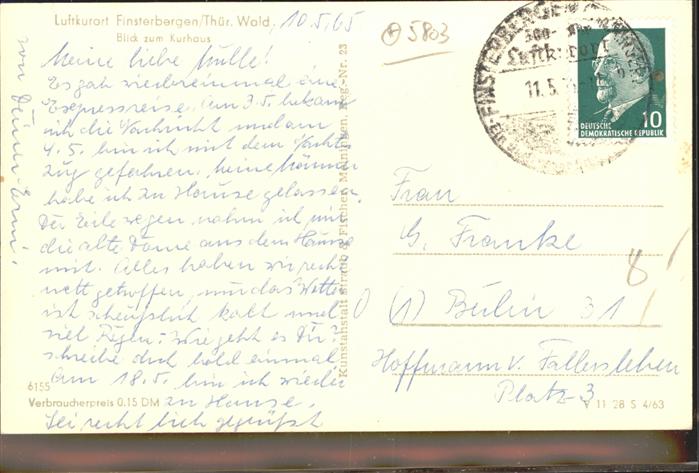 Luftkurort Finsterbergen/Thür. Wald
Blick zum Kurhaus
10.5.65
Meine liebe Mulle!
Es gab wiedereinmal eine
Expressreise. Am 3.5. bekam
ich die Nachricht und am
4.5. bin ich mit dem Nacht-
zug gefahren, meine Männer
habe ich zu Hause gelassen.
Der Eile wegen nahm ich mir
die alte Dame aus dem Hause
mit. Alles haben wir recht
nett getroffen, nur das Wetter
ist scheußlich kalt und
viel Regen. Wie geht es Dir?
schreibe doch bald einmal
Am 18.5. bin ich wieder
zu Hause.
Sei recht lieb gegrüßt
von Deiner Erni!
6155
Verbraucherpreis 0.15 DM
Kunstanstalt Straub & Fischer, Meiningen, Reg.-Nr. 23
5803
FINSTERBERGEN
Luftkurort
11.5.
10
DEUTSCHE
DEMOKRATISCHE REPUBLIK
Frau
G. Franke
(1) Berlin 31
8
Hoffmann v. Fallersleben
Platz 3
V 11 28 S 4/63